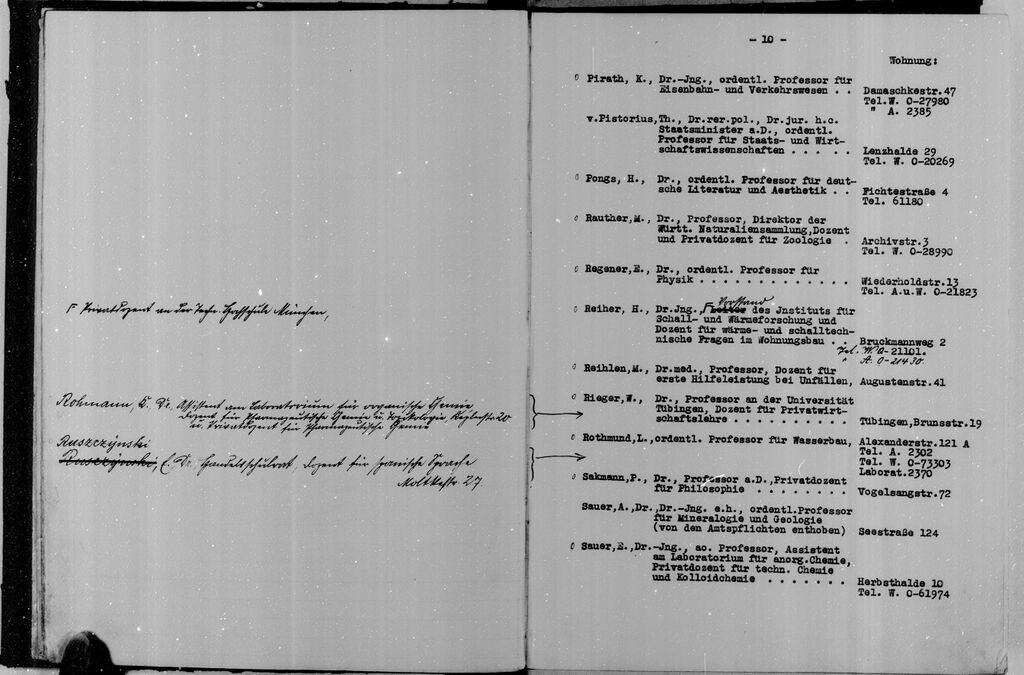 Γ Privatdozent an der Techn. Hochschule München,
Rohmann, C. Dr. Assistent am Laboratorium für organische Chemie
Dozent für Pharmazeutische Chemie u. Toxikologie, Keplerstr. 20
u. Privatdozent für Pharmazeutische Chemie
Ruszczýnski
Rusczýnski, E. Dr. Handelsschulrat, Dozent für spanische Sprache
Moltkestr. 27.
- 10 -
Wohnung:
0 Pirath, K., Dr.-Jng., ordentl. Professor für
Eisenbahn- und Verkehrswesen . . Damaschkestr.47
Tel.W. 0-27980
" A. 2385
v.Pistorius,Th., Dr.rer.pol., Dr.jur. h.c.
Staatsminister a.D., ordentl.
Professor für Staats- und Wirt-
schaftswissenschaften . . . . . Lenzhalde 29
Tel. W. 0-20269
0 Pongs, H., Dr., ordentl. Professor für deut-
sche Literatur und Aesthetik . . Fichtestraße 4
Tel. 61180
0 Rauther,M., Dr., Professor, Direktor der
Württ. Naturaliensammlung,Dozent
und Privatdozent für Zoologie . Archivstr.3
Tel. W. 0-28990
0 Regener,E., Dr., ordentl. Professor für
Physik . . . . . . . . . . . . . Wiederholdstr.13
Tel. A.u.W. 0-21823
Vorstand
0 Reiher, H., Dr.Jng., Γ Leiter des Jnstituts für
Schall- und Wärmeforschung und
Dozent für wärme- und schalltech-
nische Fragen im Wohnungsbau . . Bruckmannweg 2
Tel. W. 0-21101.
" A. 0-21430.
0 Reihlen,M., Dr.med., Professor, Dozent für
erste Hilfeleistung bei Unfällen, Augustenstr.41
0 Rieger,W., Dr., Professor an der Universität
Tübingen, Dozent für Privatwirt-
schaftslehre . . . . . . . . . . Tübingen,Brunsstr.19
0 Rothmund,L.,ordentl. Professor für Wasserbau, Alexanderstr.121 A
Tel. A. 2302
Tel. W. 0-73303
Laborat.2370
0 Sakmann,P., Dr., Professor a.D.,Privatdozent
für Philosophie . . . . . . . . Vogelsangstr.72
Sauer,A., Dr.,Dr.-Jng. e.h., ordentl.Professor
für Mineralogie und Geologie
(von den Amtspflichten enthoben) Seestraße 124
0 Sauer,E.,Dr.-Jng., ao. Professor, Assistent
am Laboratorium für anorg.Chemie,
Privatdozent für techn. Chemie
und Kolloidchemie . . . . . . . Herbsthalde 10
Tel. W. 0-61974